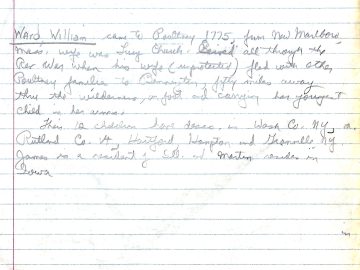 Ward, William came to Poultney 1775, from New Marlboro,
Mass. wife was Lucy Church. Served all through the
Rev War when his wife (unprotected) fled with other
Poultney families to fifty miles away
thru the wilderness, on foot and carrying her youngest
child in her arms.
Their 12 children have desc. in Wash Co. NY
Rutland Co. Vt, Hartford, Hampton and Granville, NY
James was a resident of Ill. and Martin resides in
Iowa